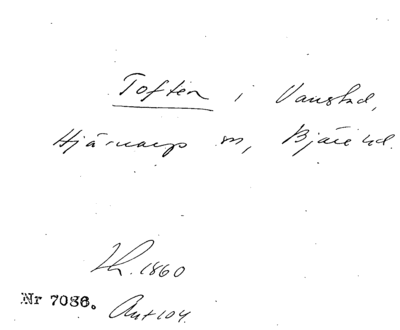 Toften i Vanstad,
Hjärnarp sn, Bjäre hd.
Lh. 1860
Nr 7086. Ant 104.